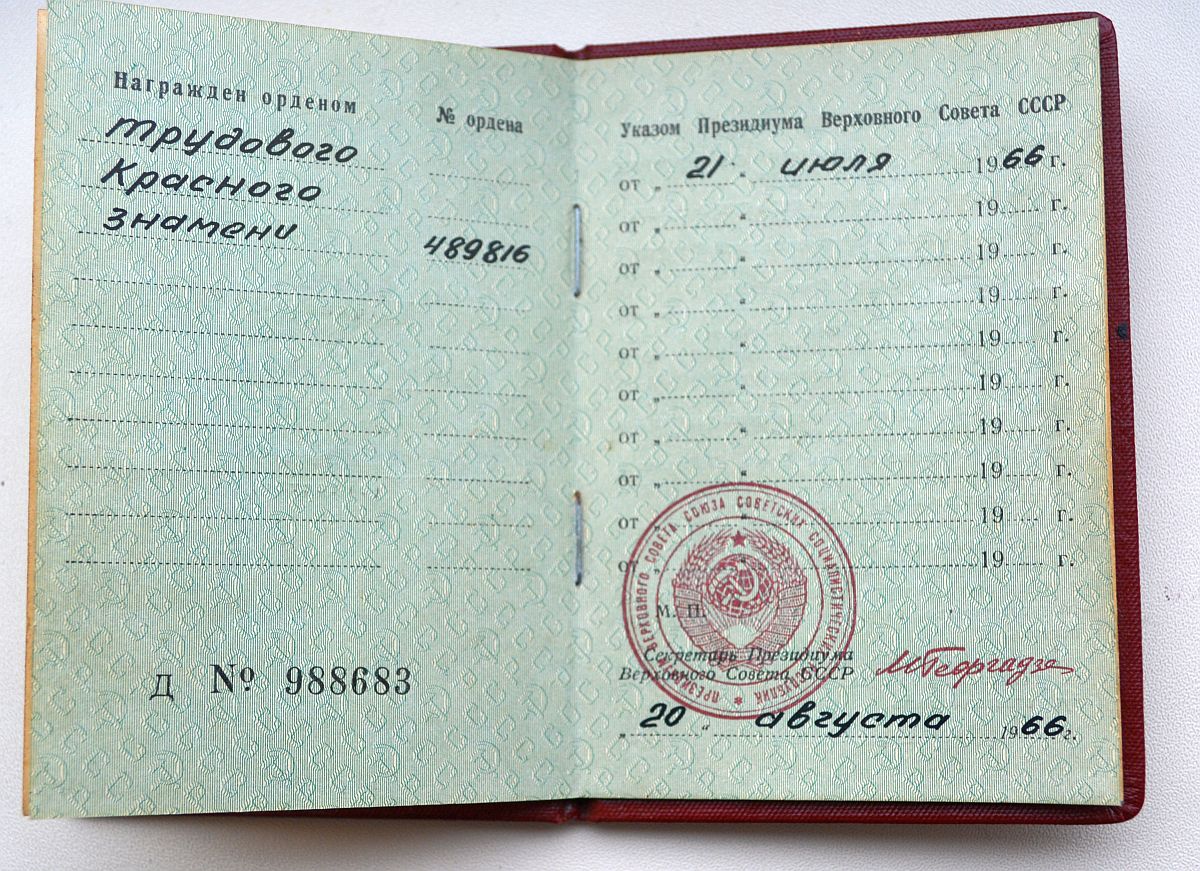 Награжден орденом
№ ордена
Трудового
Красного
Знамени
489816
Д № 988683
Указом Президиума Верховного Совета СССР
от „ 21 “ июля 1966 г.
от „ “ 19 г.
от „ “ 19 г.
от „ “ 19 г.
от „ “ 19 г.
от „ “ 19 г.
от „ “ 19 г.
от „ “ 19 г.
от „ “ 19 г.
от „ “ 19 г.
ПРЕЗИДИУМ ВЕРХОВНОГО СОВЕТА СОЮЗА СОВЕТСКИХ СОЦИАЛИСТИЧЕСКИХ РЕСПУБЛИК
М. П.
Секретарь Президиума
Верховного Совета СССР
МГеоргадзе
„ 20 “ августа 1966 г.